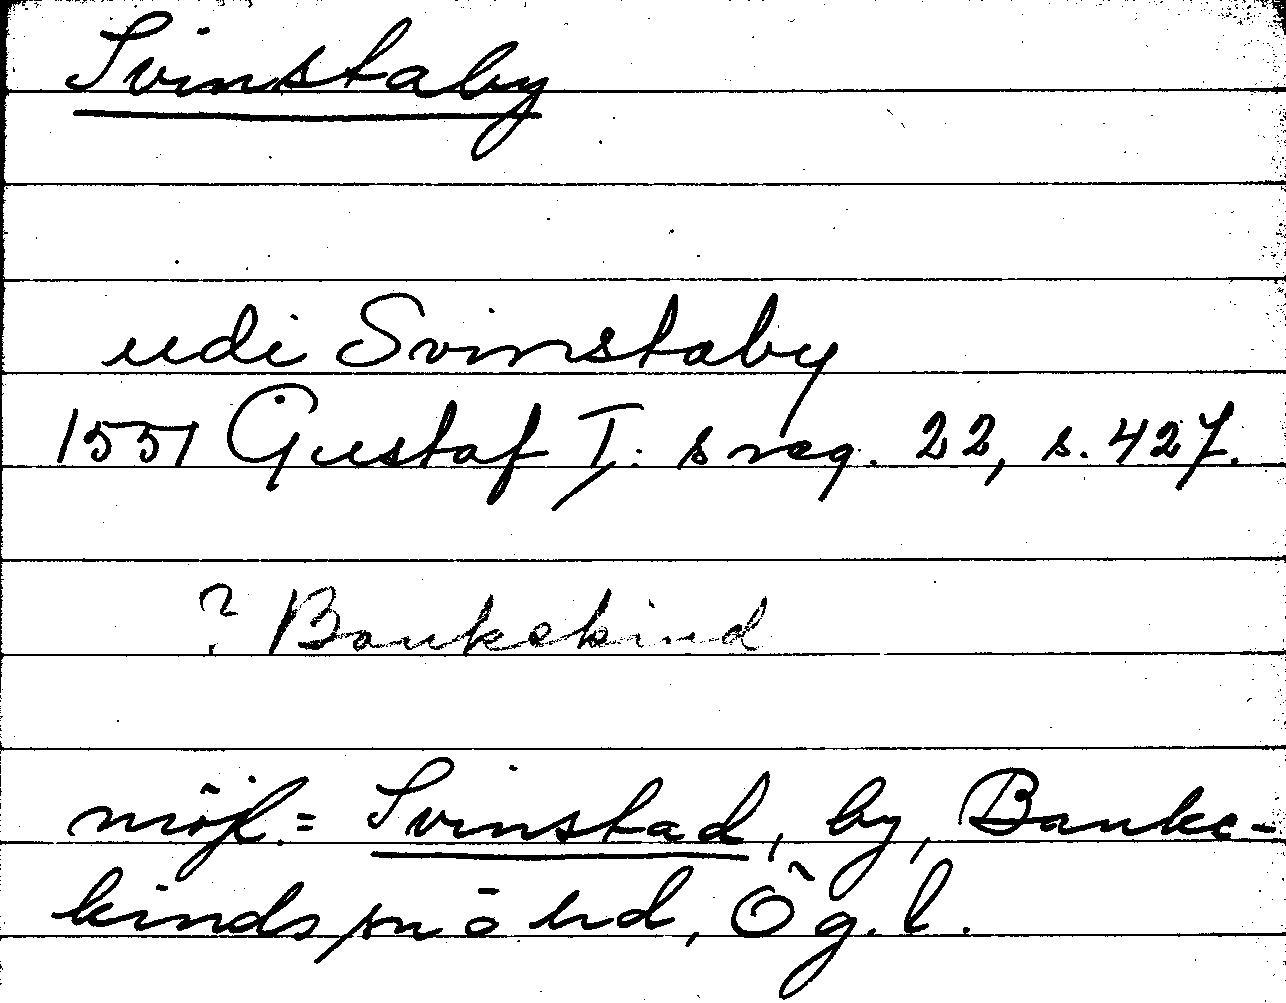 Svinstaby
udi Svinstaby
1551 Gustaf I:s reg. 22, s. 427.
? Bankekind
möjl. = Svinstad, by, Banke-
kinds sn o hd, Ög. l.